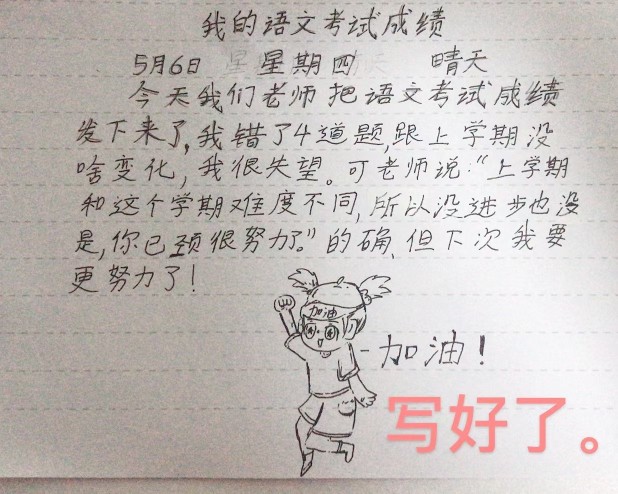 我的语文考试成绩
5月6日 星期四 晴天
今天我们老师把语文考试成绩
发下来了,我错了4道题,跟上学期没
啥变化,我很失望。可老师说:“上学期
和这个学期难度不同,所以没进步也没
是,你已颈很努力了。”的确,但下次我要
更努力了!
加油
-加油!
写好了。